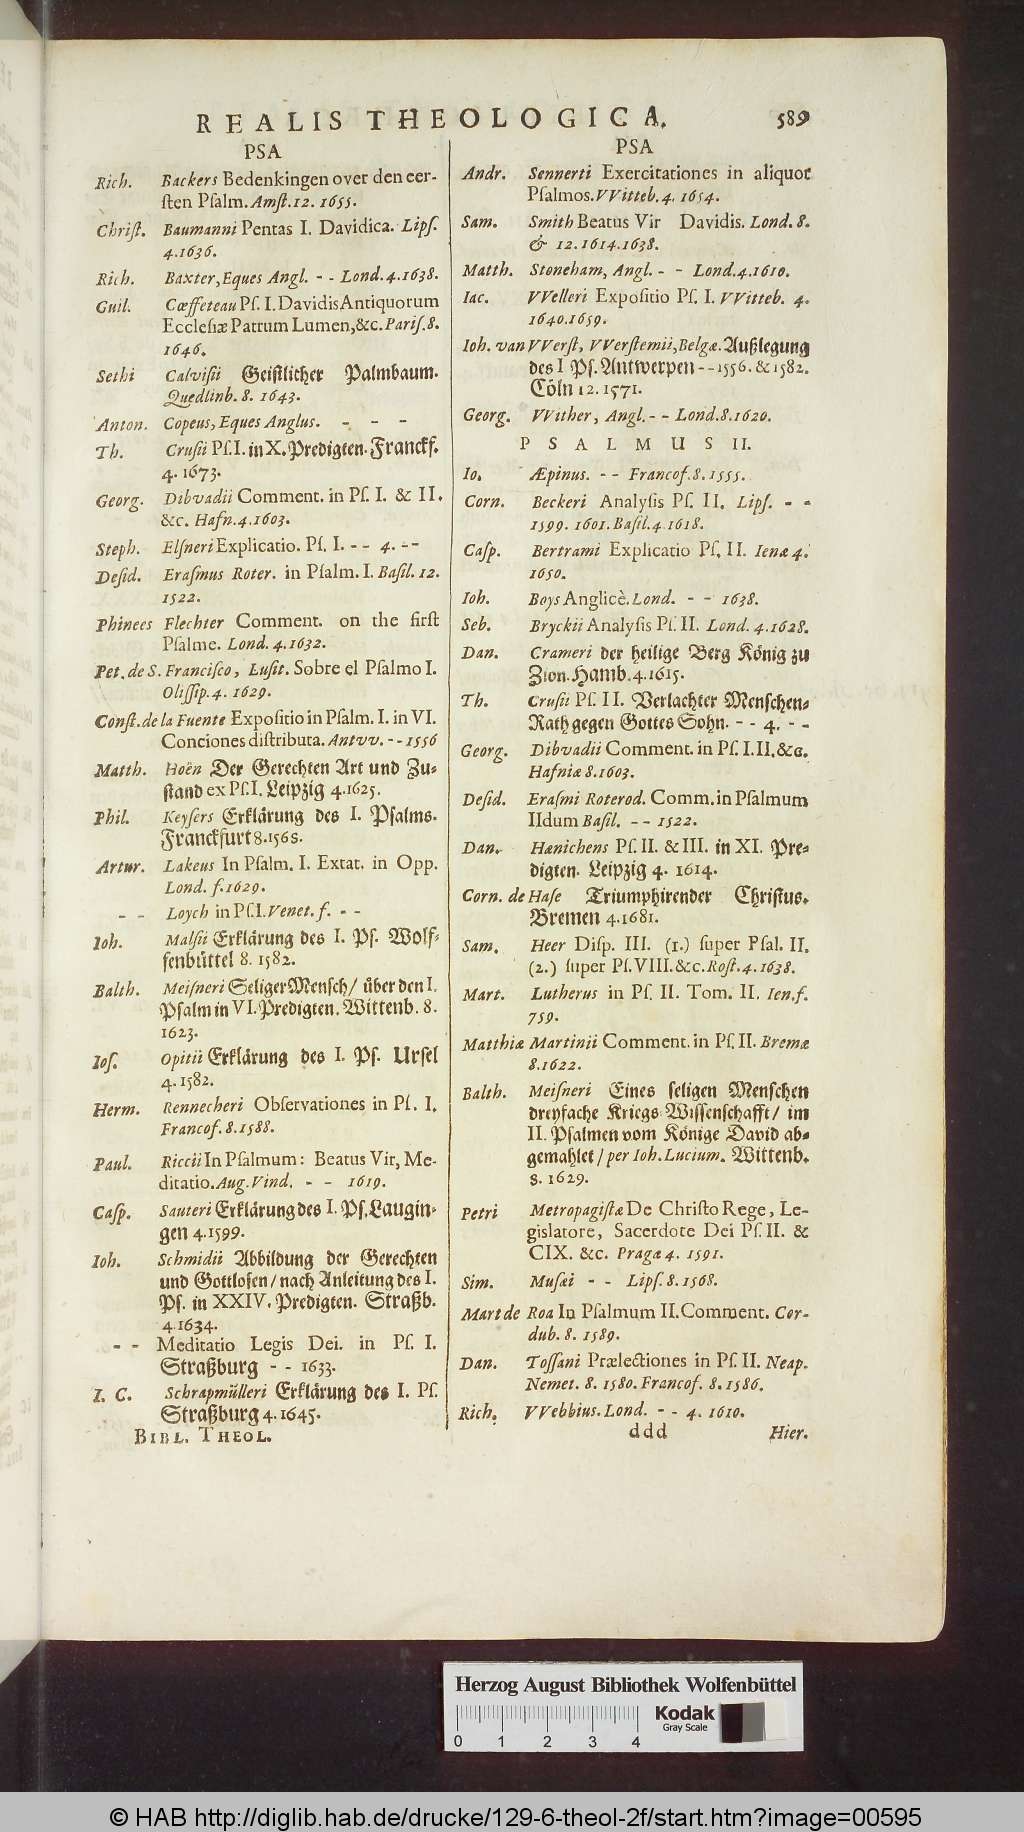 REALIS THEOLOGICA. 589
PSA
Rich. Backers Bedenkingen over den eer-
sten Psalm. Amst. 12. 1655.
Christ. Baumanni Pentas I. Davidica. Lips.
4.1636.
Rich. Baxter, Eques Angl. - - Lond. 4. 1638.
Guil. Cœffeteau Ps. I. Davidis Antiquorum
Ecclesiæ Patrum Lumen, &c. Paris. 8.
1646.
Sethi Calvisii Geistlicher Palmbaum.
Quedlinb. 8. 1643.
Anton. Copeus, Eques Anglus. - - -
Th. Crusii Ps. I. in X. Predigten. Franckf.
4. 1673.
Georg. Dibvadii Comment. in Ps. I. & II.
&c. Hafn. 4. 1603.
Steph. Elsneri Explicatio. Ps. I. - - 4. - -
Desid. Erasmus Roter. in Psalm. I. Basil. 12.
1522.
Phinees Flechter Comment. on the first
Psalme. Lond. 4. 1632.
Pet. de S. Francisco, Lusit. Sobre el Psalmo I.
Olissip. 4. 1629.
Const. de la Fuente Expositio in Psalm. I. in VI.
Conciones distributa. Antvv. - - 1556
Matth. Hoën Der Gerechten Art und Zu-
stand ex Ps. I. Leipzig 4. 1625.
Phil. Keysers Erklärung des I. Psalms.
Franckfurt 8. 1568.
Artur. Lakeus In Psalm. I. Extat. in Opp.
Lond. f. 1629.
- - Loych in Ps. I. Venet. f. - -
Ioh. Malsii Erklärung des I. Ps. Wolf-
fenbüttel 8. 1582.
Balth. Meisneri Seliger Mensch / über den I.
Psalm in VI. Predigten. Wittenb. 8.
1623.
Ios. Opitii Erklärung des I. Ps. Ursel
4. 1582.
Herm. Rennecheri Observationes in Ps. I.
Francof. 8. 1588.
Paul. Riccii In Psalmum: Beatus Vir, Me-
ditatio. Aug. Vind. - - 1619.
Casp. Sauteri Erklärung des I. Ps. Laugin-
gen 4. 1599.
Ioh. Schmidii Abbildung der Gerechten
und Gottlosen / nach Anleitung des I.
Ps. in XXIV. Predigten. Straßb.
4. 1634.
- - Meditatio Legis Dei. in Ps. I.
Straßburg - - 1633.
I. C. Schrapmülleri Erklärung des I. Ps.
Straßburg 4. 1645.
BIBL. THEOL.
PSA
Andr. Sennerti Exercitationes in aliquot
Psalmos. VVitteb. 4. 1654.
Sam. Smith Beatus Vir Davidis. Lond. 8.
& 12. 1614. 1638.
Matth. Stoneham, Angl. - - Lond. 4. 1610.
Iac. VVelleri Expositio Ps. I. VVitteb. 4.
1640. 1659.
Ioh. van VVerst, VVerstemii, Belgæ. Außlegung
des I Ps. Antwerpen - - 1556. & 1582.
Cöln 12. 1571.
Georg. VVither, Angl. - - Lond. 8. 1620.
PSALMUS II.
Io. Æpinus. - - Francof. 8. 1555.
Corn. Beckeri Analysis Ps. II. Lips. - -
1599. 1601. Basil. 4. 1618.
Casp. Bertrami Explicatio Ps. II. Ienæ 4.
1650.
Ioh. Boys Anglicè. Lond. - - 1638.
Seb. Bryckii Analysis Ps. II. Lond. 4. 1628.
Dan. Crameri der heilige Berg König zu
Zion. Hamb. 4. 1615.
Th. Crusii Ps. II. Verlachter Menschen-
Rath gegen Gottes Sohn. - - 4. - -
Georg. Dibvadii Comment. in Ps. I. II. &c.
Hafniæ 8. 1603.
Desid. Erasmi Roterod. Comm. in Psalmum
IIdum Basil. - - 1522.
Dan. Hænichens Ps. II. & III. in XI. Pre-
digten. Leipzig 4. 1614.
Corn. de Hase Triumphirender Christus.
Bremen 4. 1681.
Sam. Heer Disp. III. (1.) super Psal. II.
(2.) super Ps. VIII. &c. Rost. 4. 1638.
Mart. Lutherus in Ps. II. Tom. II. Ien. f.
759.
Matthiæ Martinii Comment. in Ps. II. Bremæ
8. 1622.
Balth. Meisneri Eines seligen Menschen
dreyfache Kriegs-Wissenschafft / im
II. Psalmen vom Könige David ab-
gemahlet / per Ioh. Lucium. Wittenb.
8. 1629.
Petri Metropagistæ De Christo Rege, Le-
gislatore, Sacerdote Dei Ps. II. &
CIX. &c. Pragæ 4. 1591.
Sim. Musæi - - Lips. 8. 1568.
Mart de Roa In Psalmum II. Comment. Cor-
dub. 8. 1589.
Dan. Tossani Prælectiones in Ps. II. Neap.
Nemet. 8. 1580. Francof. 8. 1586.
Rich. VVebbius. Lond. - - 4. 1610.
ddd Hier.
Herzog August Bibliothek Wolfenbüttel
0 1 2 3 4
Kodak
Gray Scale
© HAB http://diglib.hab.de/drucke/129-6-theol-2f/start.htm?image=00595